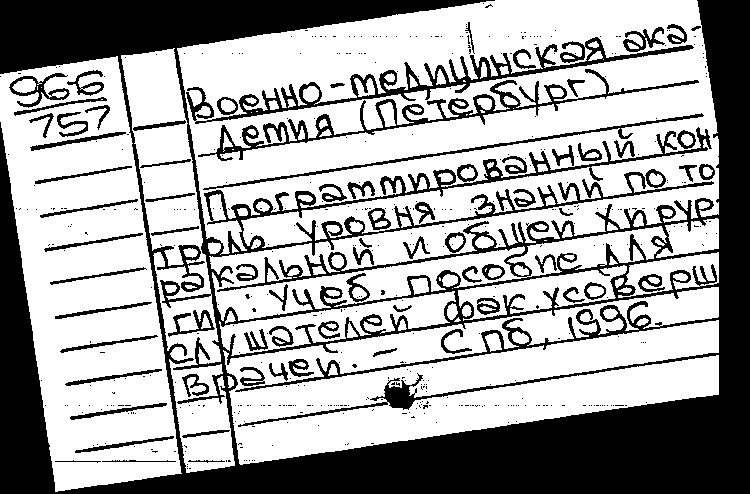 96-6
757
Военно-медицинская ака-
демия (Петербург).
Программированный кон-
троль уровня знаний по то-
ракальной и общей хирур-
гии: Учеб. пособие для
слушателей фак. усоверш
врачей. - Спб, 1996.